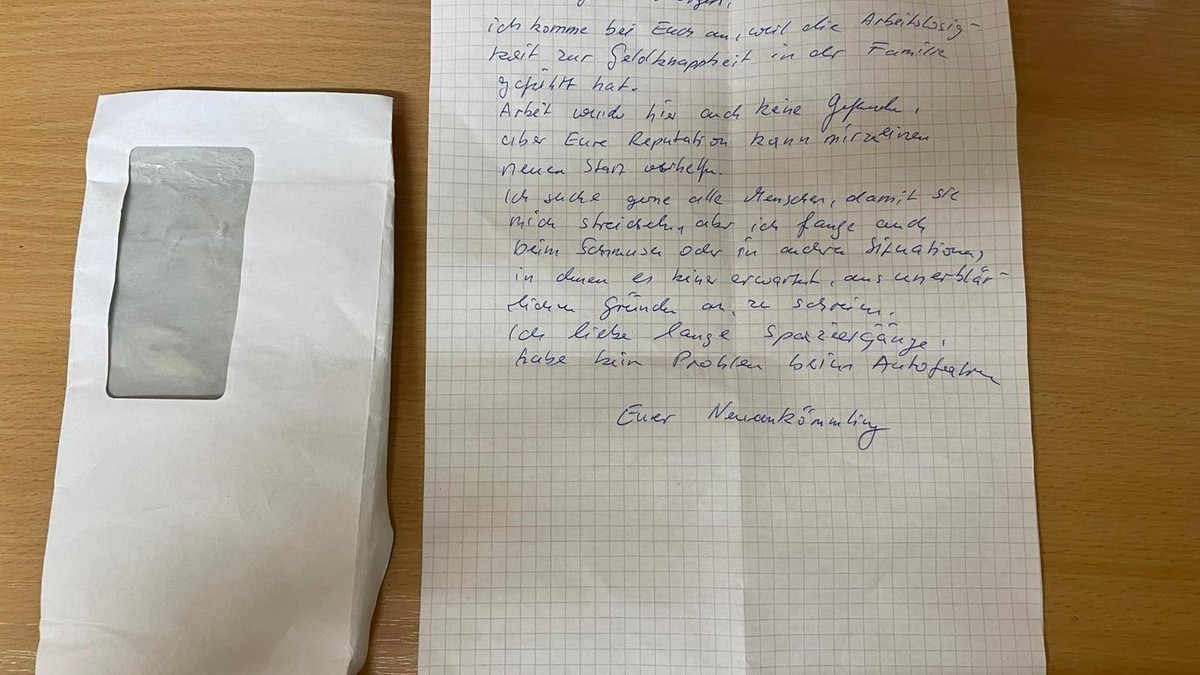 ich komme bei Euch an, weil die Arbeitslosig-
keit zur Geldknappheit in der Familie
geführt hat.
Arbeit wurde hier auch keine Gefunden,
aber Eure Reputation kann mir einen
neuen Start verhelfen.
Ich suche gerne alle Menschen, damit sie
mich streicheln, aber ich fange auch
beim Schmusen oder in andren Situationen,
in denen es keiner erwartet, aus unerklär-
lichen Gründen an, zu schreien.
Ich liebe lange Spaziergänge,
habe kein Problem beim Autofahren
Euer Neuankömmling